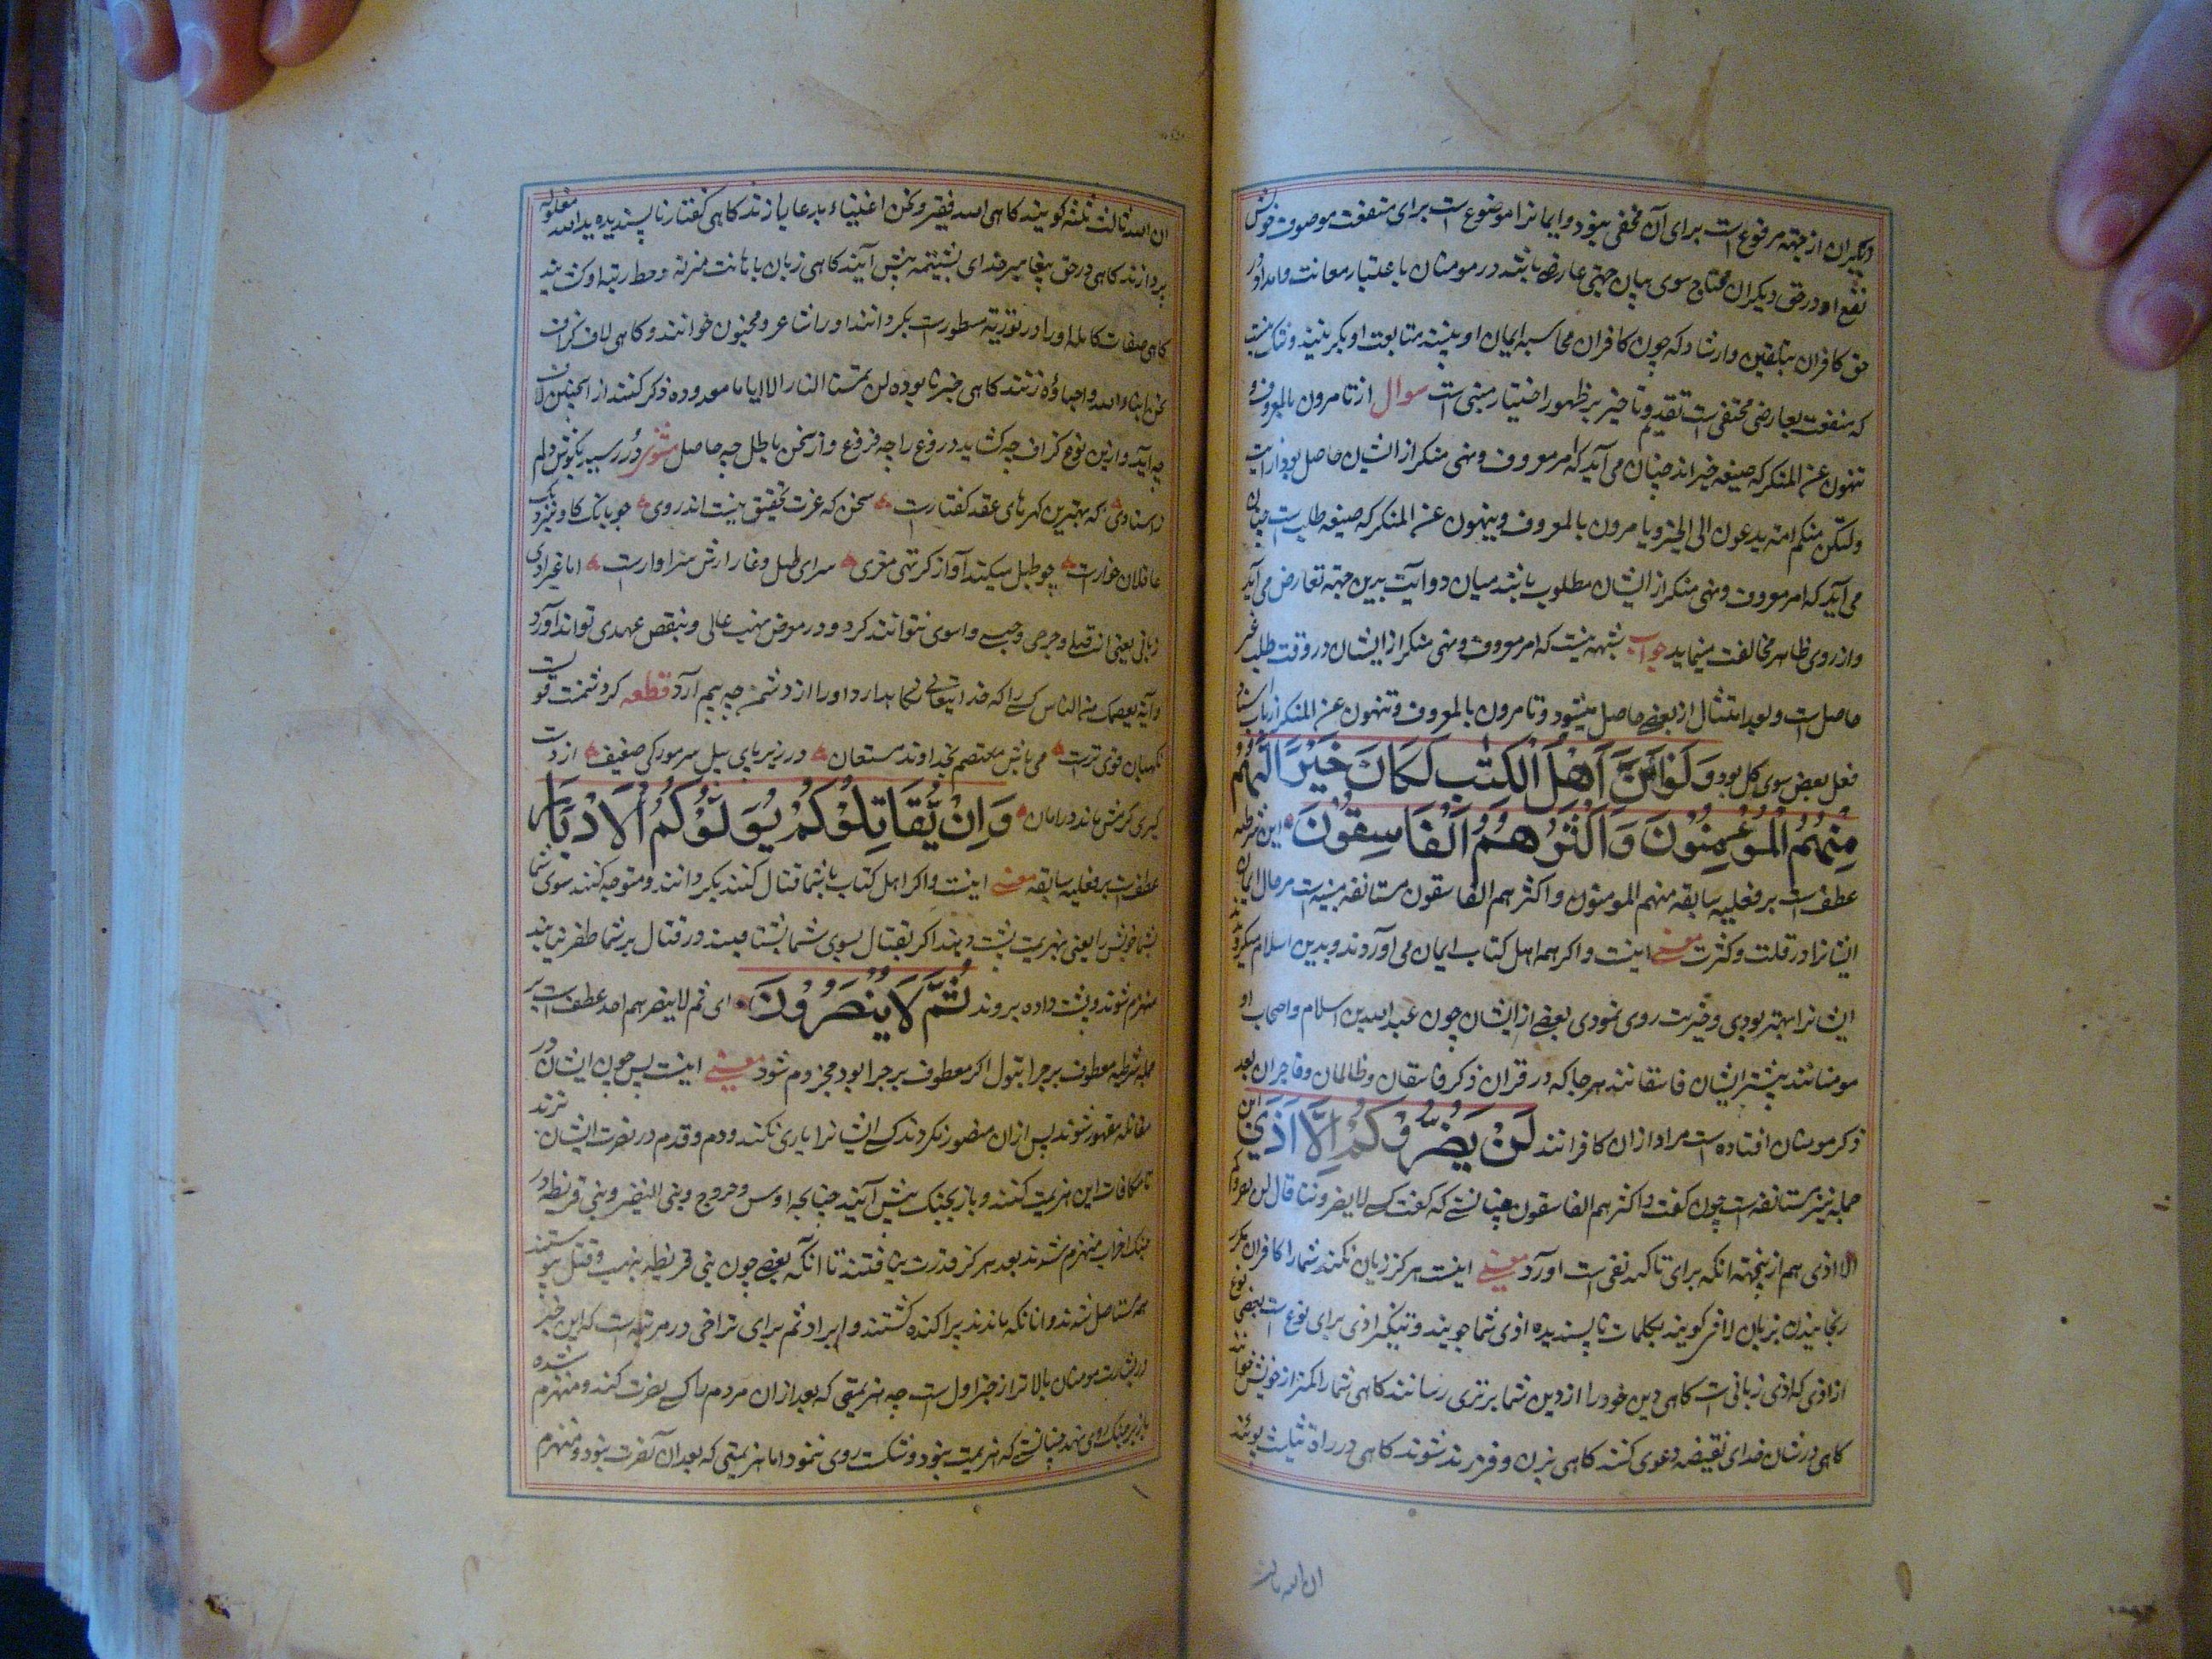 دیگران از جهة مرفوع است برای آن مخفی نبود و ایمانرا موضوع است برای منفعت موصوف خویش
نفع او در حق دیگران محتاج سوی بیان جهتی عارض باشد در مومنان باعتبار معانت و امداد و در
حق کافران بتلقین و ارشاد که چون کافران محاسبه ایمان او بینند متابعت او بکزینند و شک نیست
که منفعت بعارض مختفی است تقدیم و تاخیر بر ظهور اختیار مبنی است سوال از تامرون بالمعروف و
تنهون عن المنکر که صیغه خبراند چنان می آید که امر معروف و نهی منکر از ایشان حاصل بود از آیت
ولتکن منکم امة یدعون الی الخیر و یامرون بالمعروف و ینهون عن المنکر که صیغه طلب است چنان
می آید که امر معروف و نهی منکر از ایشان مطلوب باشد میان دو آیت بدین جهة تعارض می آید
و از روی ظاهر مخالفت مینماید جواب شبهه نیست که امر معروف و نهی منکر از ایشان در وقت طلب غیر
حاصل است و بعد امتثال از بعضی حاصل میشود و تامرون بالمعروف و تنهون عن المنکر از باب اسناد
فعل بعض سوی کل بود وَلَوْ آمَنَ أَهْلُ الْكِتٰبِ لَكَانَ خَيْرًا لَّهُمْ
مِنْهُمُ الْمُؤْمِنُونَ وَأَكْثَرُهُمُ الْفَاسِقُونَ این شرطیه
عطف است بر فعلیه سابقه منهم المومنون و اکثرهم الفاسقون مستانفه مبینه است مر حال ایمان
ایشانرا در قلت و کثرت معنی اینست و اکر همه اهل کتاب ایمان می آوردند و بدین اسلام میکرویدند
ایشانرا بهتر بودی و خیریت روی نمودی بعضی از ایشان چون عبدالله بن سلام و اصحاب او
مومنانند بیشتر ایشان فاسقانند هر جا که در قران ذکر فاسقان و ظالمان و فاجران بعد
ذکر مومنان افتاده است مراد از ان کافرانند لَنْ يَضُرُّوكُمْ إِلَّا أَذًى این
جمله نیز مستانفه است چون کفت و اکثرهم الفاسقون چنانستی که کفت کسی لا یضروننا قال لن یضروکم
الا اذی هم ازینجهة انکه برای تاکید نفی است آورد معنی اینست هرکز زیان نکنند شما را کافران مکر
رنجانیدن بزبان لافر کویند بکلمات ناپسندیده اذی شما جویند و تنکیر اذی برای نوع است یعنی نوع
از اذی که اذی زبانی است کاهی دین خود را از دین شما برتری رسانند کاهی شما را کمتر از خویش خوانند
کاهی در شان خدای نقیضه دعوی کنند کاهی بزن و فرزند شوند کاهی در راه تثلیث پویند
ان الله ثالث
ان الله ثالث ثلثه کویند کاهی الله فقیر و نحن اغنیاء بدعا یازند کاهی کفتار ناپسندیده ید الله مغلوله
پردازند کاهی در حق پیغامبر خدای بشتیمه پیش آیند کاهی زبان باهانت منزلة و حط رتبه او کشایند
کاهی صفات کامله او را در توریة مسطور است بکردانند او را شاعر و مجنون خوانند و کاهی لاف کزاف
نحن ابناء الله و احباؤه زنند کاهی خبر نابوده لن تمسنا النار الا ایاما معدوده ذکر کنند از اینچنین لاف
چه آید و ازین نوع کزاف چه کشاید دروغ را چه فروغ و از سخن باطل چه حاصل مثنوی در رسید بکوش دلم
ز استادی که بهترین کهرهای عقد کفتارست سخن که عزت تحقیق نیست اندر وی چو بانک کاو بنزدیک
عاقلان خوارست چو طبل میکند آواز کر تهی مغزی سرای طبل وغا را رش سزاوارست اما غیر اذی
زبانی یعنی از قتل و جرح و حبس و اسری نتوانند کرد و در معرض نهب مالی و بنقص عهدی توانند آورد
و آیة یعصمک من الناس کسی را که خدایتعالی نکاهدارد او را از دشمن چه بیم آرد قطعه کر دشمنت قویست
نکهبان قوی ترست می باش معتصم بخداوند مستعان در زیر پای پیل سر مورکی ضعیف از دست
کیری کرمش ماند در امان وَإِنْ يُّقَاتِلُوكُمْ يُوَلُّوكُمُ الْأَدْبَارَ
عطفست بر فعلیه سابقه معنی اینست و اکر اهل کتاب با شما قتال کنند بکردانند و متوجه کنند سوی شما
پشتها خویش را یعنی بهزیمت پشت دهند اکر بقتال بسوی شما بشتابند در قتال بر شما ظفر نیابند
منهزم شوند و پشت داده بروند ثُمَّ لَا يُنْصَرُونَ ای ثم لا ینصرهم احد عطف است بر
جمله شرطیه معطوف بر جزا بتول اکر معطوف بر جزا بود مجزوم شود معنی اینست پس چون ایشان در
مقاتله مقهور شوند پس از ان منصور نکردند کسی ایشانرا یاری نکند و دم و قدم در نصرت ایشان نزند
تا مکافات این هزیمت کنند و باز بجنک پیش آیند چنانچه اوس و خزرج و بنی النضیر و بنی قریظه در
جنک احزاب منهزم شدند بعد هرکز قدرت نیافتند تا انکه بعضی چون بنی قریظه بنهب و قتل پیوستند
همه مستاصل شدند و انانکه ماندند پراکنده کشتند و ایراد ثم برای تراخی در مرتبه است که این خبر
در بشارت مومنان بالاتر از خبر اول است چه هزیمتی که بعد از ان مردم را کسی نصرت کند و منهزم شده
باز بر جنک روی نهد چنانستی که هزیمت نبود و شکست روی ننمود اما هزیمتی که بعد ان نصرت نبود و منهزم